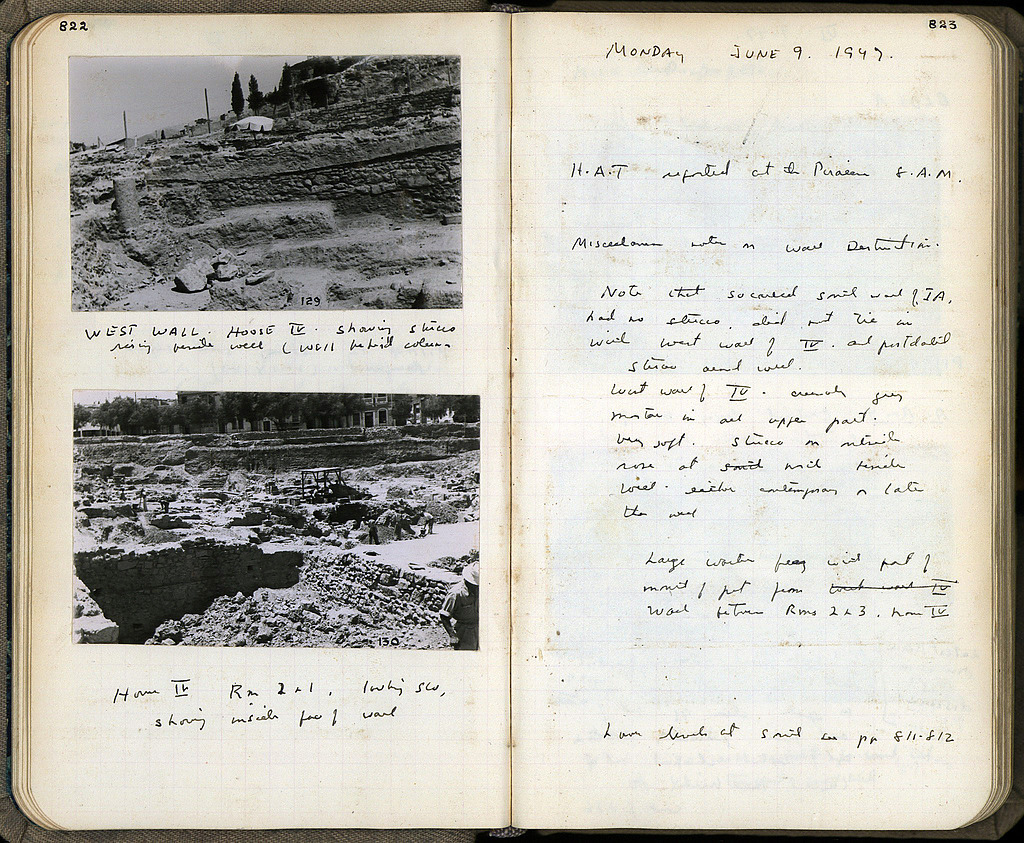 822
129
WEST WALL. HOUSE IV. showing stucco
rising beside well (well behind column
130
House IV Rm 2 & 1, looking SW,
showing inside face of wall
823
MONDAY JUNE 9. 1947.
H.A.T reported at the Piraeus 8.A.M.
Miscellaneous notes on wall Destruction.
Note that so called south wall of IA,
had no stucco, did not tie in
with west wall of IV. and postdated
stucco and well.
West wall of IV. crumbly grey
mortar in and upper part.
Very soft. Stucco on outside
rose at south until beside
well. either contemporary or later
the well
Large worked frag with part of
of pot from west wall IV
Wall between Rms 2 & 3. House IV
Lower levels at south see pp 811-812